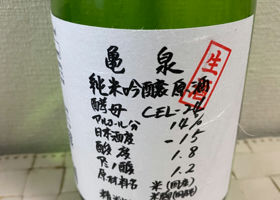 亀泉
生酒
純米吟醸原酒
酵母 CEL-24
アルコール分 14%
日本酒度 -15
酸度 1.8
アミノ酸 1.2
原材料名 米(国産)
米麹(国産米)
精米